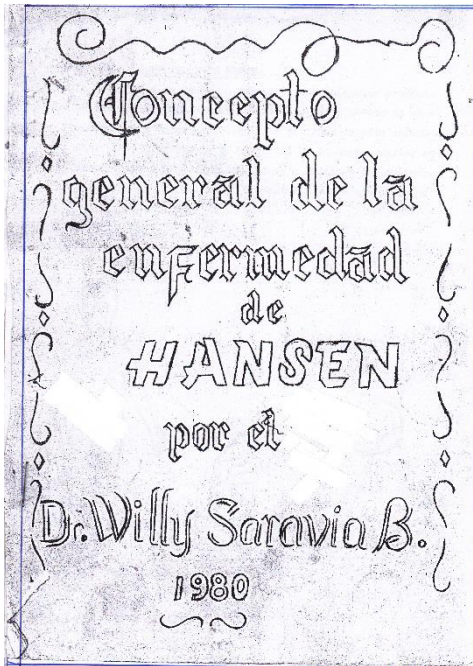 Concepto
general de la
enfermedad
de
HANSEN
por el
Dr. Willy Saravia B.
1980